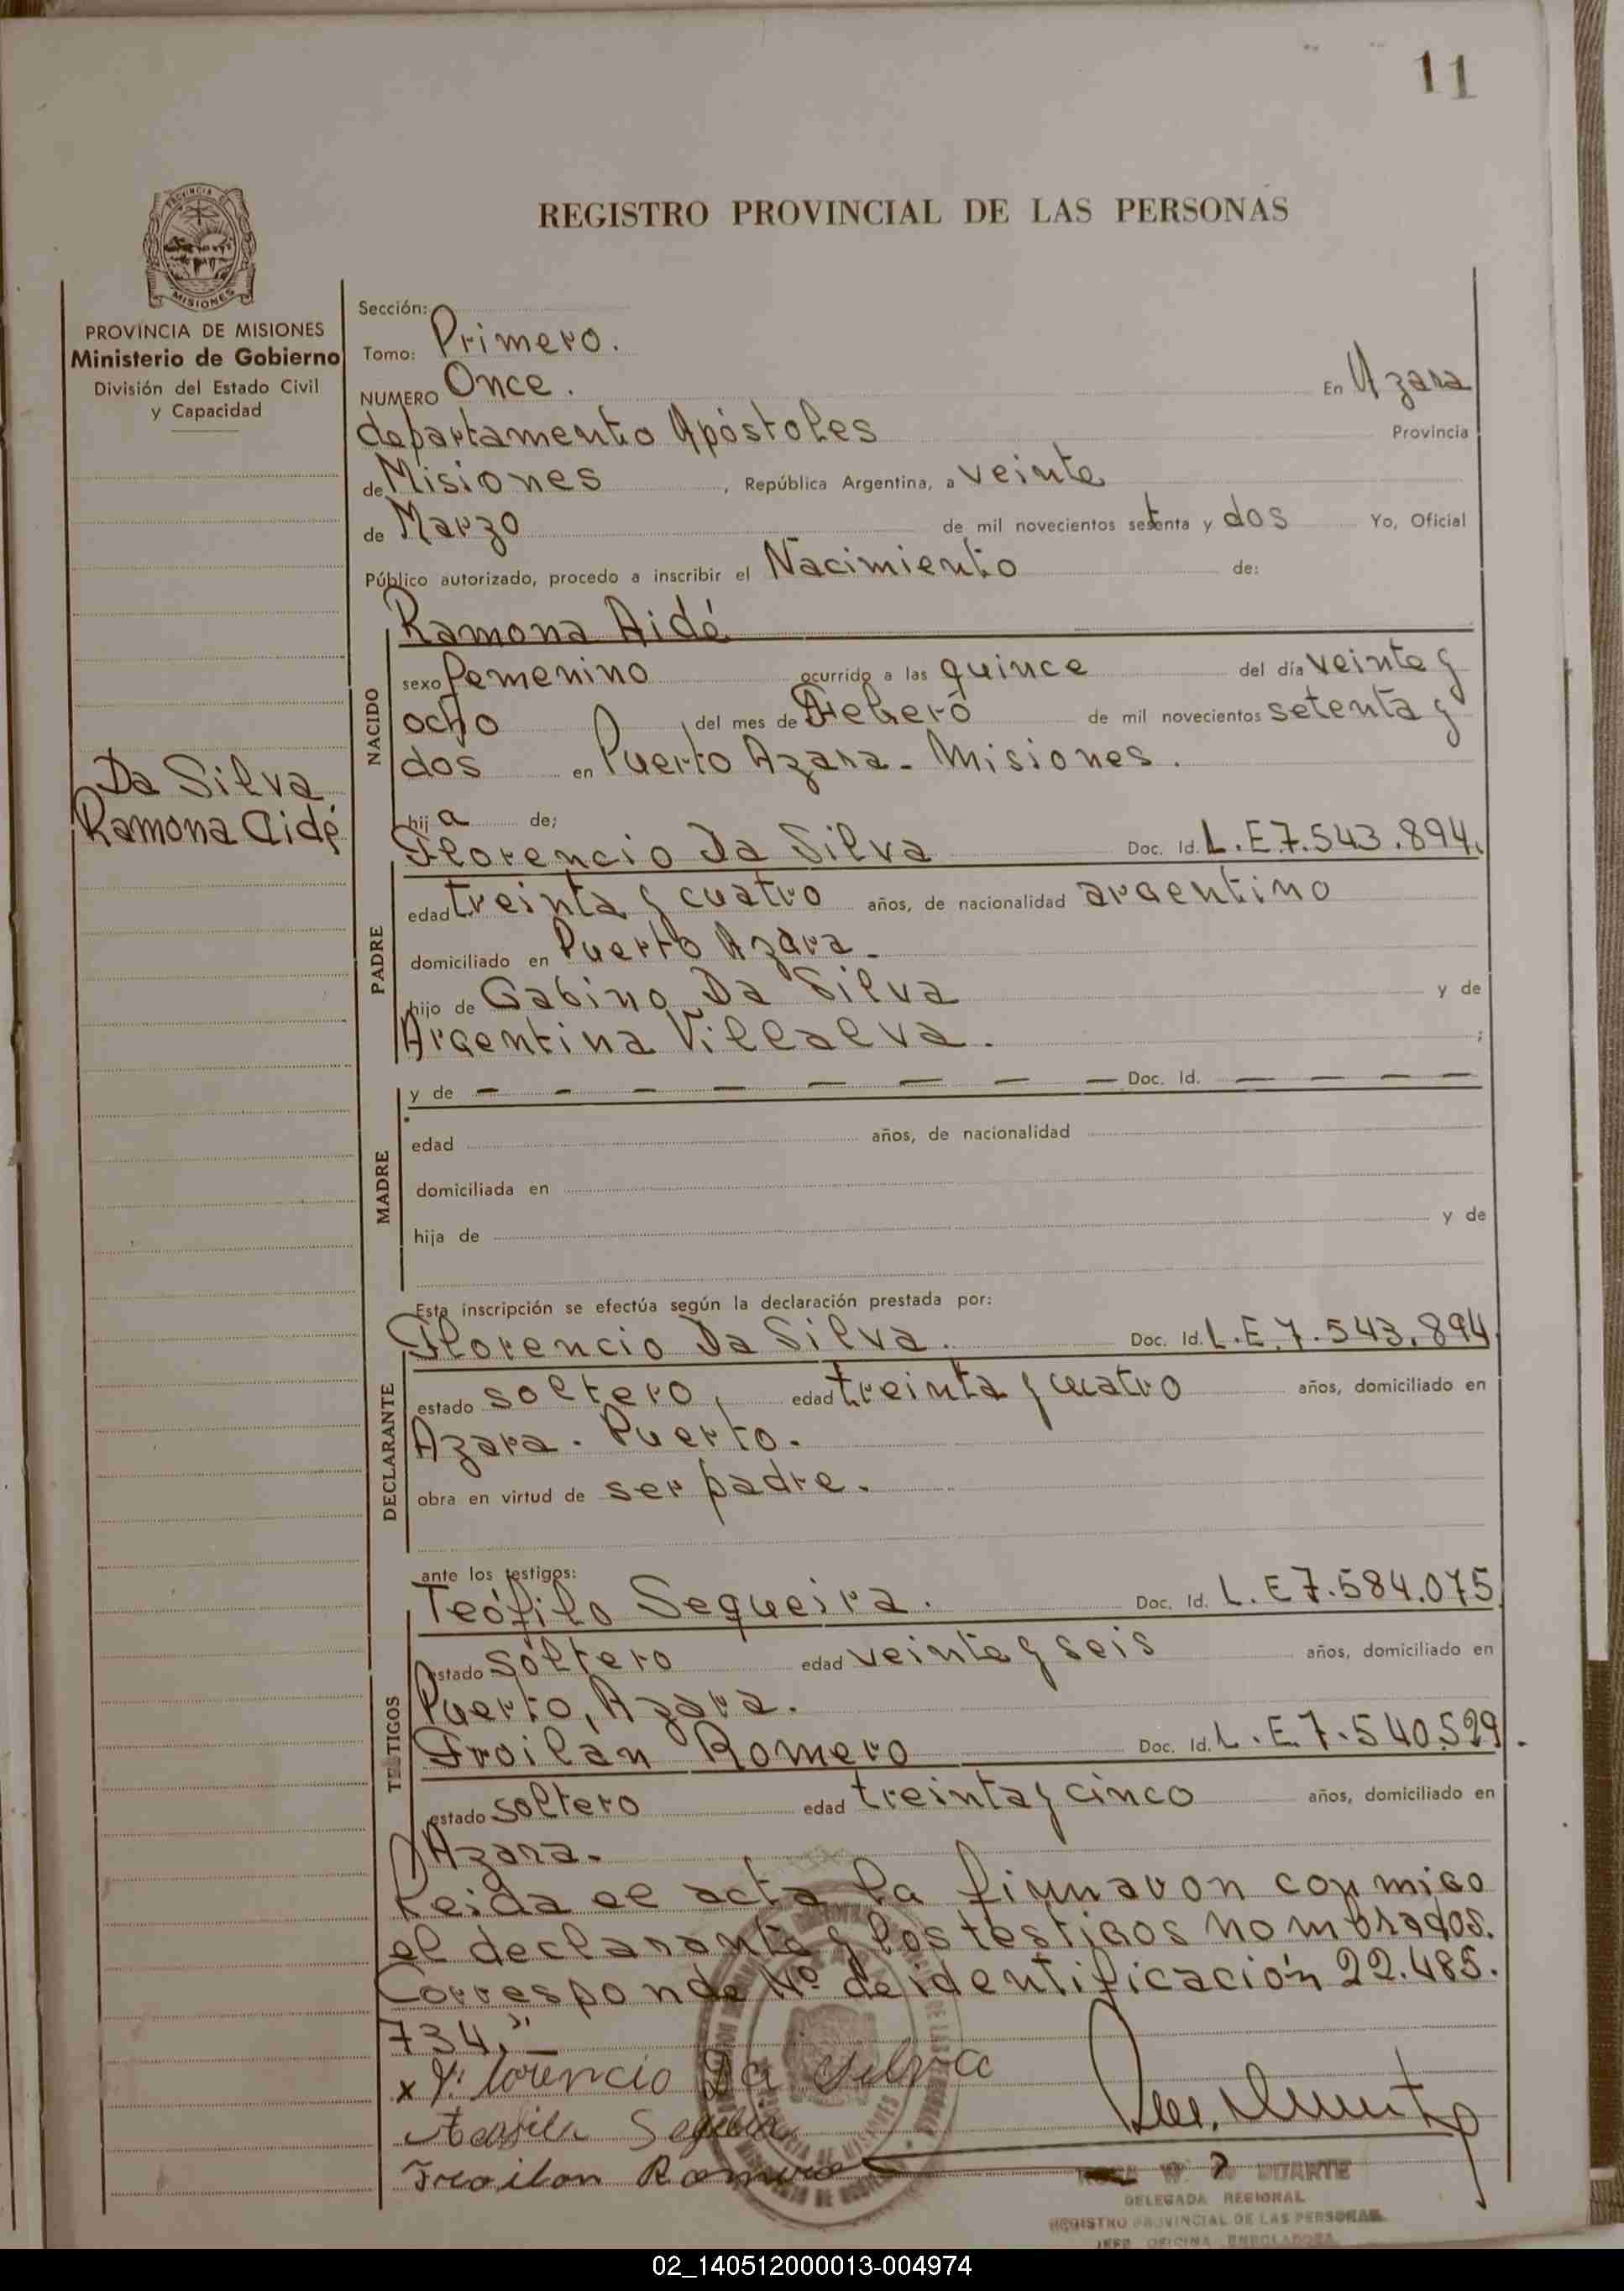 11
PROVINCIA DE
MISIONES
REGISTRO PROVINCIAL DE LAS PERSONAS
PROVINCIA DE MISIONES
Ministerio de Gobierno
División del Estado Civil
y Capacidad
Da Silva
Ramona Aidé
Sección:
Tomo: Primero.
NUMERO Once. En Azara
departamento Apóstoles Provincia
de Misiones, República Argentina, a veinte
de Marzo de mil novecientos setenta y dos Yo, Oficial
Público autorizado, procedo a inscribir el Nacimiento de:
NACIDO
Ramona Aidé
sexo femenino ocurrido a las quince del día veinte y
ocho del mes de Febero de mil novecientos setenta y
dos en Puerto Azara - Misiones.
hija de;
PADRE
Florencio Da Silva Doc. Id. L.E.7.543.894.
edad treinta y cuatro años, de nacionalidad argentino
domiciliado en Puerto Azara -
hijo de Gabino Da Silva y de
Argentina Villalva. ;
MADRE
y de — — — — — — — — Doc. Id. — — — —
edad años, de nacionalidad
domiciliada en
hija de y de
Esta inscripción se efectúa según la declaración prestada por:
DECLARANTE
Florencio Da Silva. Doc. Id. L.E.7.543.894
estado soltero, edad treinta y cuatro años, domiciliado en
Azara. Puerto.
obra en virtud de ser padre.
ante los testigos:
TESTIGOS
Teófilo Sequeira. Doc. Id. L.E 7.584.075
estado soltero edad veinte y seis años, domiciliado en
Puerto, Azara.
Froilan Romero Doc. Id. L.E.7.540.529.
estado soltero edad treinta y cinco años, domiciliado en
Azara.
Leida el acta la firmaron conmigo
el declarante y los testigos nombrados.
Corresponde Nº de identificación 22.485.
734."—
x Florencio Da Silva
Froilan Romero
DUARTE
DELEGADA REGIONAL
REGISTRO PROVINCIAL DE LAS PERSONAS
JEFE OFICINA ENROLADORA
02_140512000013-004974